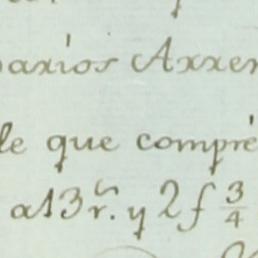 paxios Axxen
le que compré
a 13 r.s y 2 f 3/4